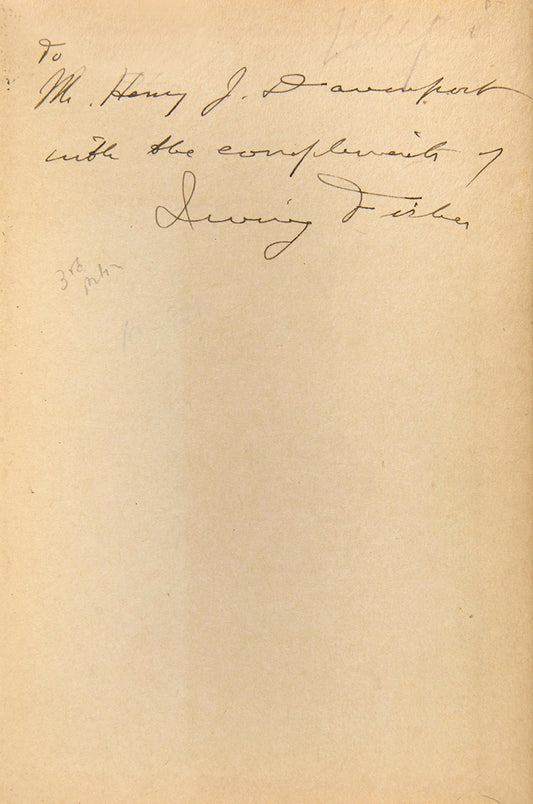 To
Mr. Henry J. Davenport
with the compliments of
Irving Fisher
3rd